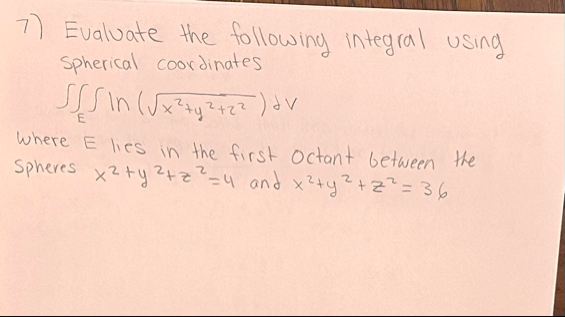 7) Evaluate the following integral using
Spherical coordinates
∭_E ln(√(x²+y²+z²)) dV
where E lies in the first octant between the
Spheres x²+y²+z²=4 and x²+y²+z²=36